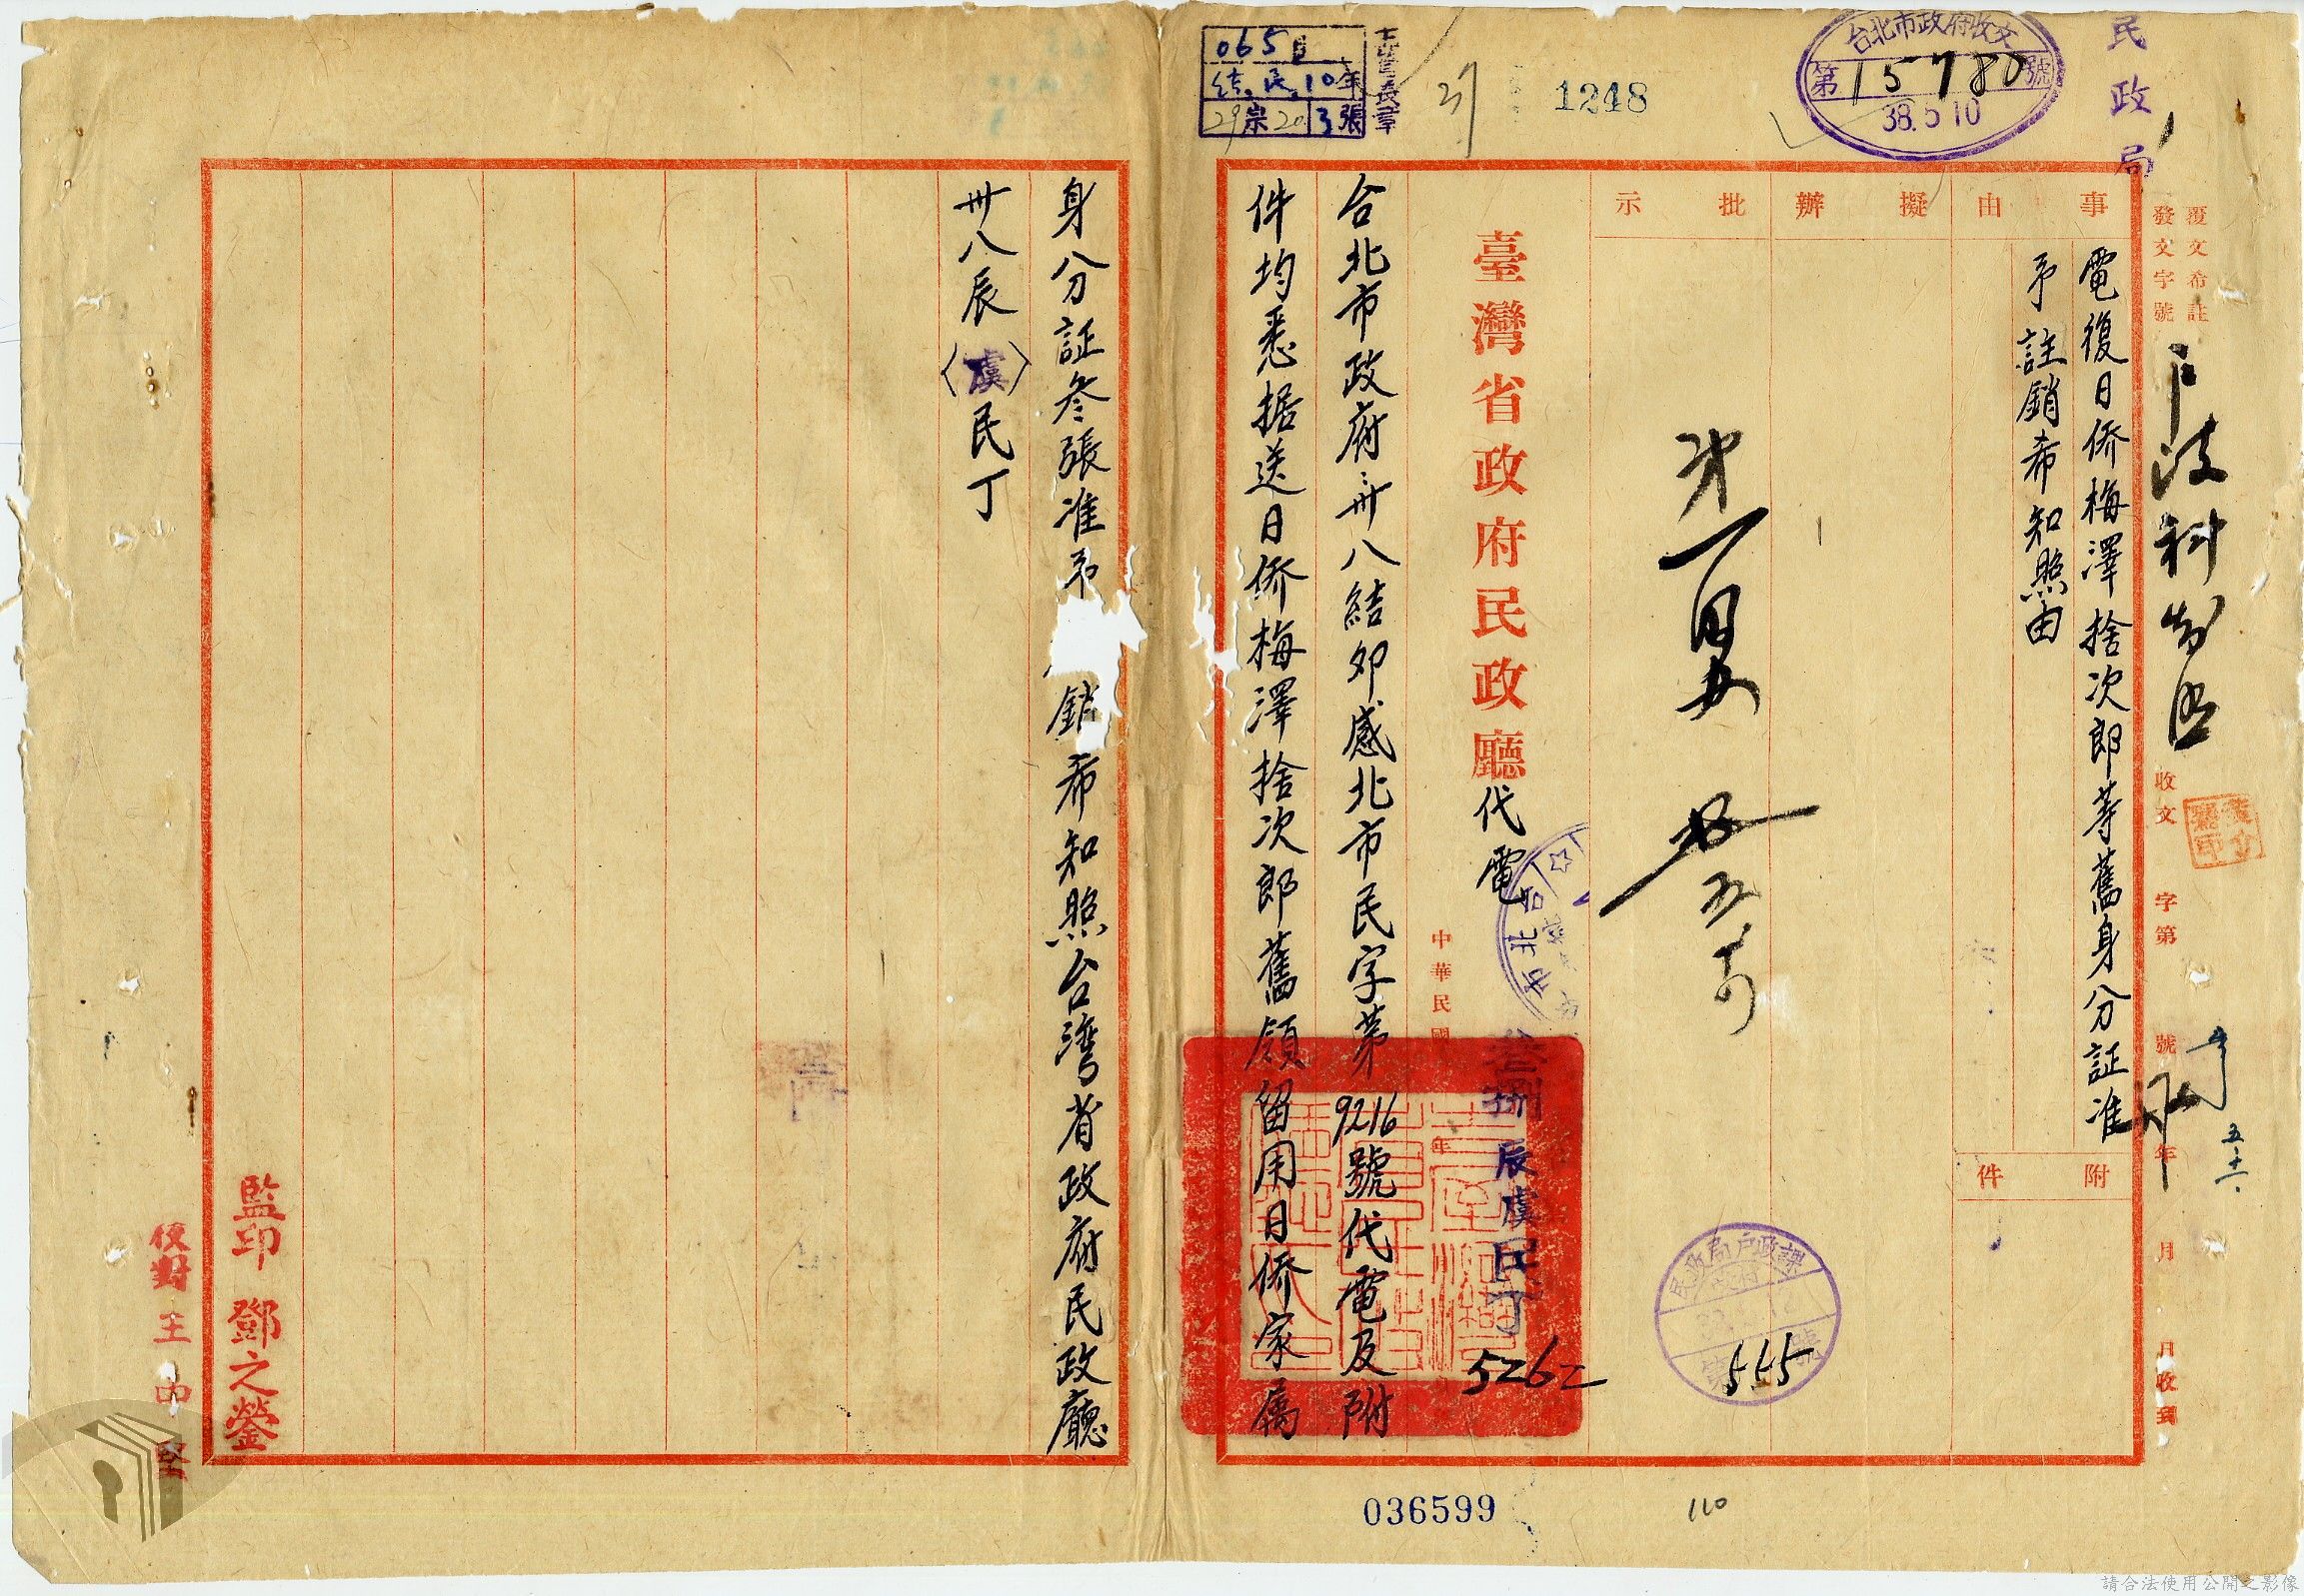 民政局
台北市政府收文
第15780號
38.5.10
1248
覆文希註
發文字號
收文 字第 號 年 月 日收到
事由
電復日侨梅澤捨次郎等舊身分証准
予註銷希知照由
附件
擬辦
批示
臺灣省政府民政廳代電
中華民國 年
叁捌辰虞民丁
5262
民政局戶政課
555
台北市政府卅八結卯感北市民字苐9216號代電及附
件均悉据送日侨梅澤捨次郎舊領留用日侨家属
身分証叁張准予 銷希知照台湾省政府民政廳
卅八辰〈虞〉民丁
監印 鄧之鎣
校對 王
036599
110
請合法使用公開之影像